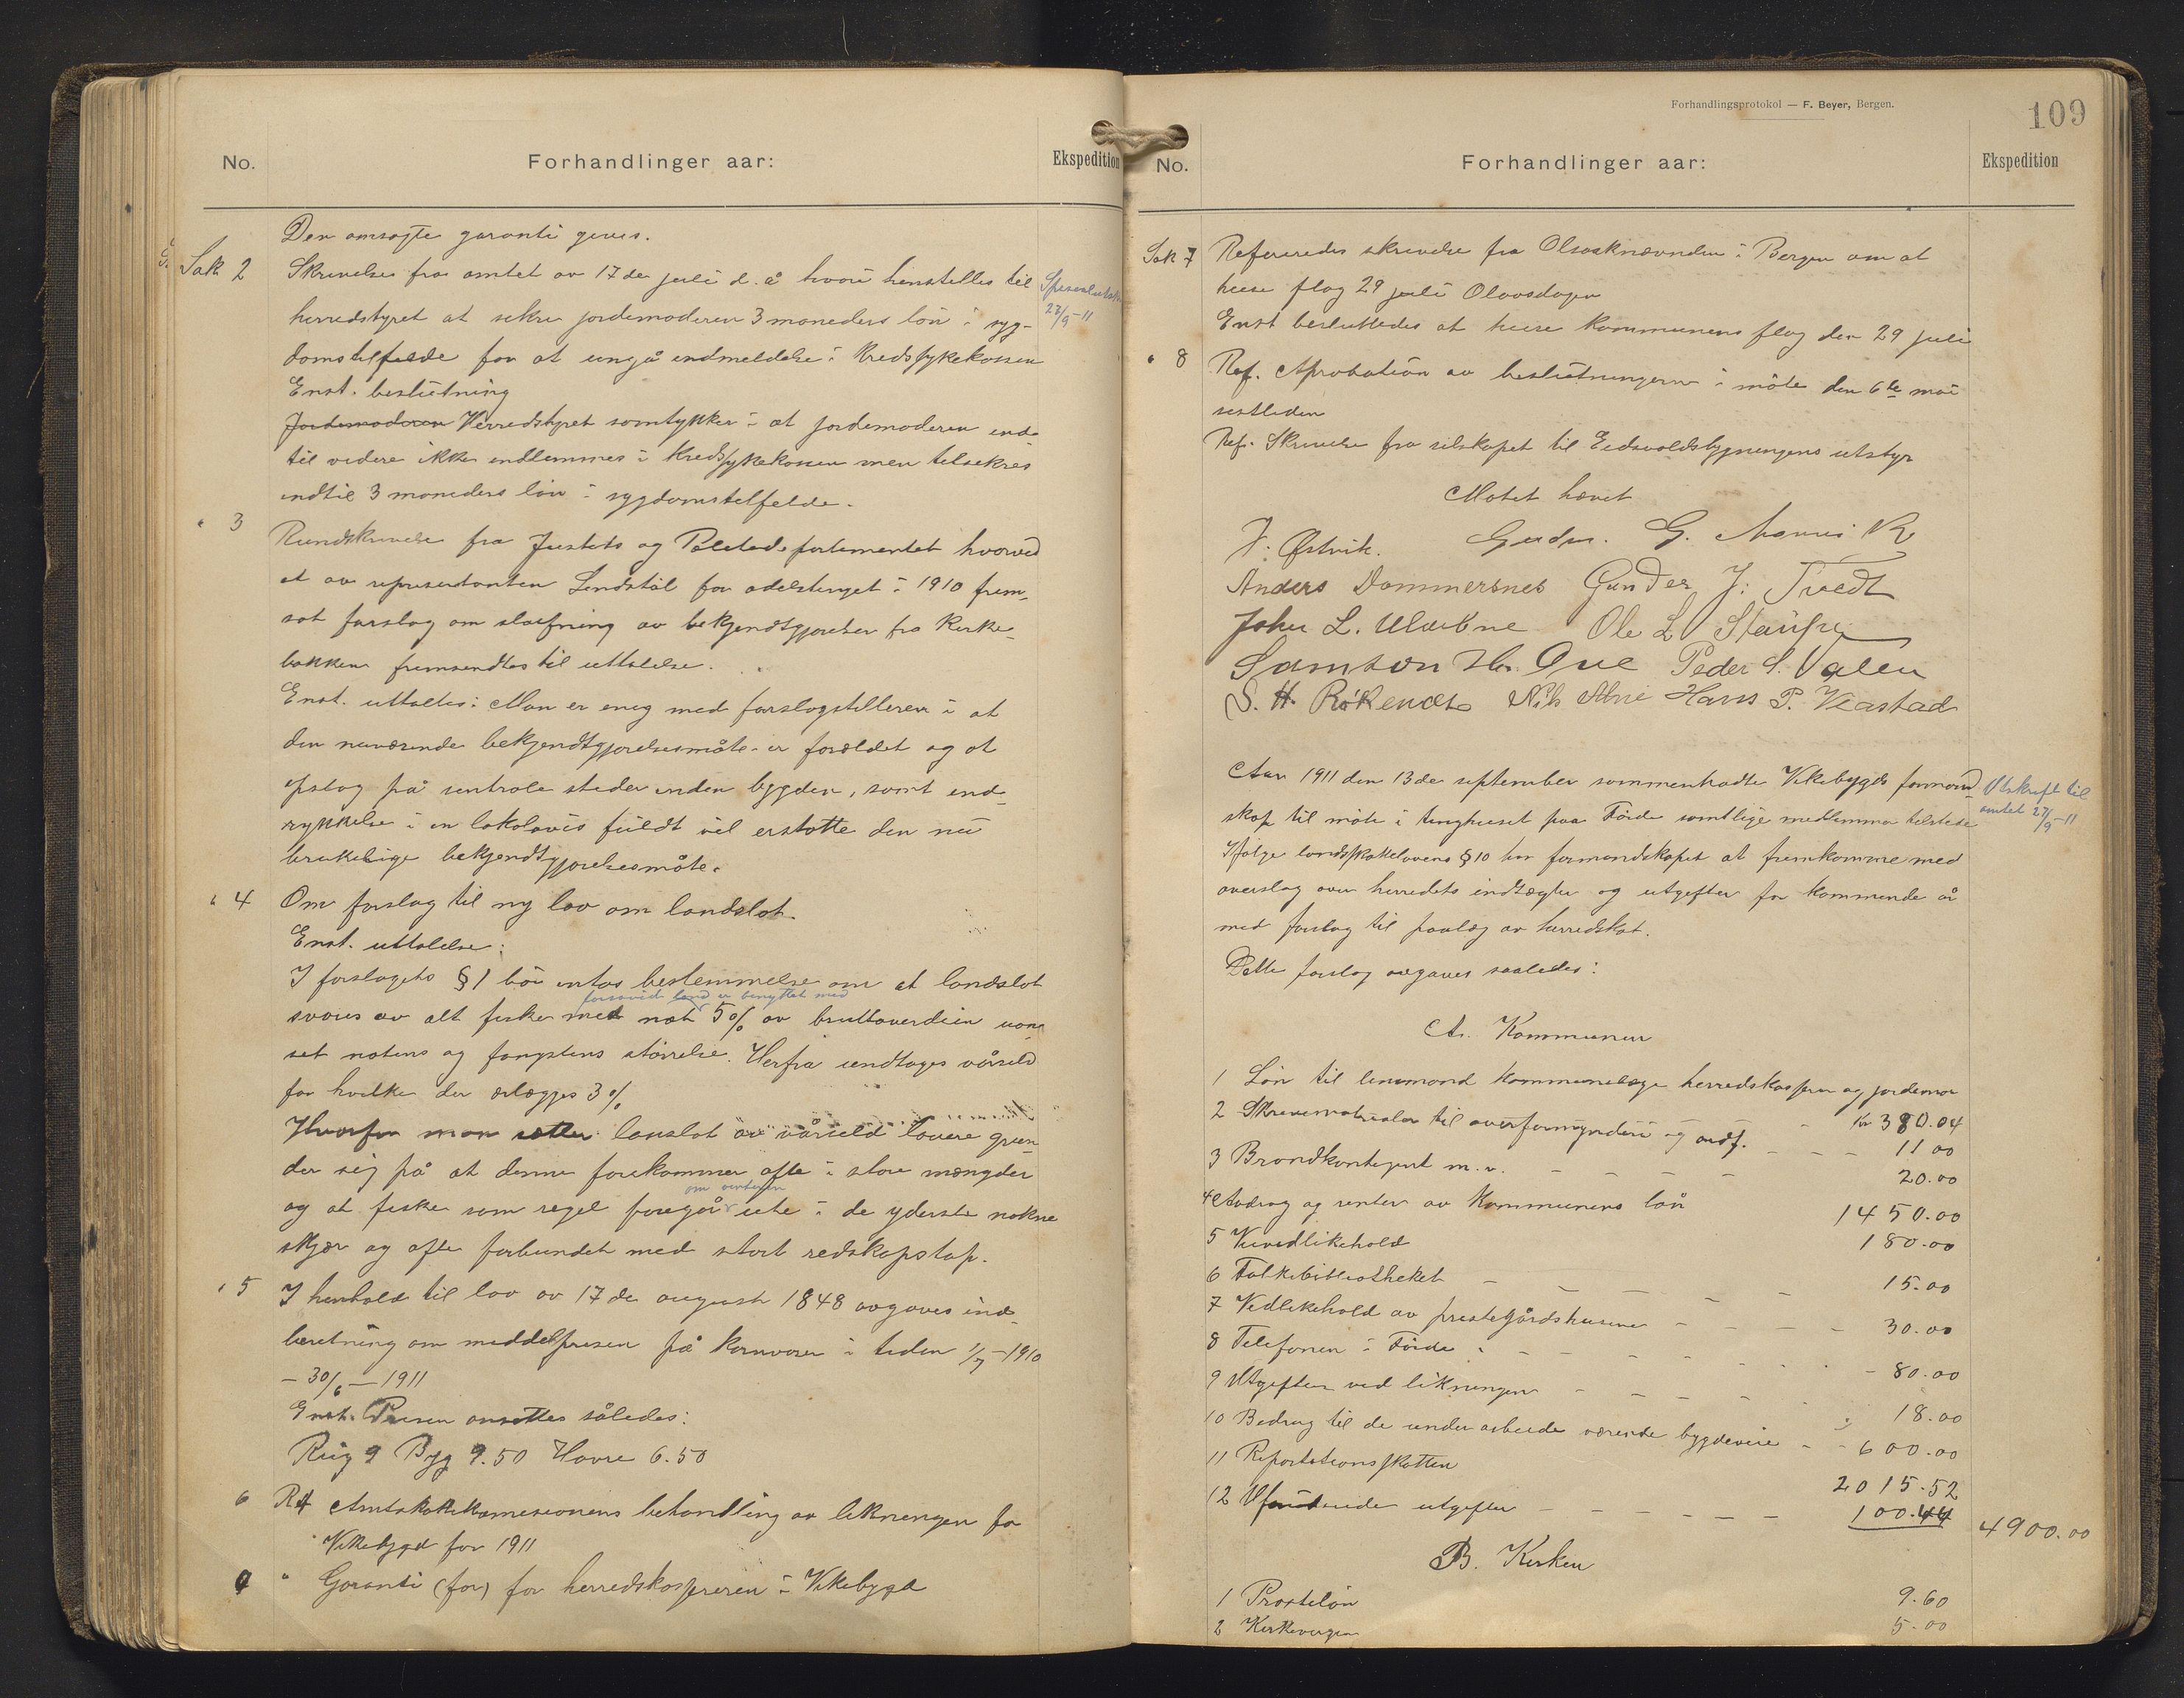 No.
Forhandlinger aar:
Ekspedition
Den omsøgte garanti gives.
Sak 2 Skrivelse fra amtet av 17de juli d. å hvori henstilles til
herredstyret at sikre jordemoderen 3 moneders løn i syg-
domstilfælde for at ungå indmeldelse i Kredssykekassen
Enst. beslutning
Jordemoderen Herredstyret samtykker i at jordemoderen ind-
til videre ikke indlemmes i kredssykekassen men tilsikres
indtil 3 moneders løn i sygdomstilfelde.
27/9-11
" 3 Rundskrivelse fra Justits og Politidepartementet hvorved
et av representanten Lindstøl for odelstinget i 1910 frem-
sat forslag om sløifning av bekjendtgjørelser fra Kirke-
bakken fremsendtes til uttalelse.
Enst. uttaltes: Man er enig med forslagstilleren i at
den nuværende bekjendtgjørelsesmåte er forældet og at
opslag på sentrale steder inden bygden, samt ind-
rykkelse i en lokalavis fuldt vel erstatte den nu
brukelige bekjendtgjørelsesmåte.
" 4 Om forslag til ny lov om landslot.
Enst. uttalelse:
I forslagets § 1 bør intas bestemmelse om at landslot
forsavidt land er benyttet med
svares av alt fiske med not 5% av bruttoverdien uan-
set notens og fangstens størrelse. Herfra undtages vårsild
for hvilke der erlægges 3%
Hvorfor man sætter lanslot av vårsild lavere grun-
der sig på at denne forekommer ofte i store mængder
om vinteren
og at fiske som regel foregår ute i de yderste nakne
skjær og ofte forbundet med stort redskapstap.
" 5 I henhold til lov av 17de august 1848 avgaves ind-
beretning om middelprisen på kornvarer i tiden 1/7-1910
- 30/6 - 1911
Enst. Prisen ansættes således:
Rug 9 Byg 9.50 Havre 6.50
6 Ref Amtsskattekomisionens behandling av likningen for
Vikebygd for 1911
" Garanti (for) for herredskassereren i Vikebygd
Forhandlingsprotokol — F. Beyer, Bergen.
109
No.
Forhandlinger aar:
Ekspedition
Sak 7 Refereredes skrivelse fra Olsoknævnden i Bergen om at
heise flag 29 juli Olavsdagen
Enst besluttedes at heise kommunens flag den 29 juli
" 8 Ref. Aprobation av beslutningerne i møte den 6te mai
sistleden
Ref. Skrivelse fra selskapet til Eidsvoldsbygningens utstyr
Møtet hævet
J. Østvik. Gudm. G.
Anders Dommersnes Gunder J. Tvedt
John L. Ole L
Samson Hr. Peder S. Valen
S. H. Nils Hans P.
Aar 1911 den 13de september sammentradte Vikebygds formand-
skap til møte i tinghuset paa Førde samtlige medlemmer tilstede
Ifølge landsskattelovens § 10 har formandskapet at fremkomme med
overslag over herredets indtægter og utgifter for kommende år
med forslag til paalæg av herredskat.
Dette forslag avgaves saaledes:
Utskrift til
amtet 27/9-11
A. Kommunen
1 Løn til lensmand kommunelæge herredskasserer og jordemor
kr 380.04
2 Skrivematrialer til overformynderi og ordf. - - - 11 00
3 Brandkontingent m.v. - - - - 20.00
4 Avdrag og renter av Kommunens lån 1450.00
5 Veivedlikehold 180.00
6 Folkebibliotheket - - - - - 15.00
7 Vedlikehold av prestegårdshusene - - - - 30.00
8 Telefonen i Førde - - - - - 80.00
9 Utgifter ved likningen - - - - 18.00
10 Bidrag til de under arbeide værende bygdeveie - - 600.00
11 Repartitionsskatten 2015.52
12 Uforutseede utgifter - - - - - 100.44
4900.00
B. Kirken
1 Prosteløn 9.60
2 Kirkevergen 5.00